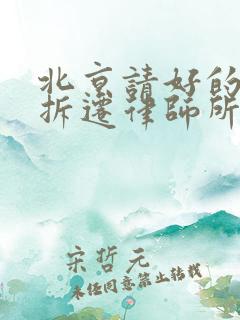 北京請好的
拆遷律師所
宋哲元
未任同意禁止转载